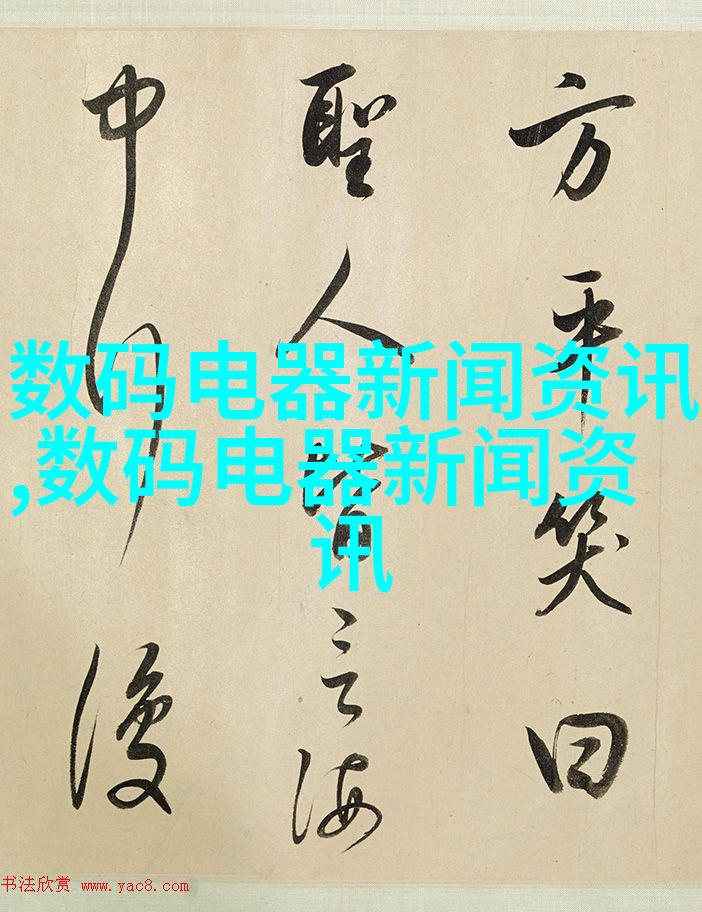 方平笑曰
聖人皆言海
中行復
数码电器新闻资讯
,数码电器新闻资
讯
书法欣赏 www.yac8.com